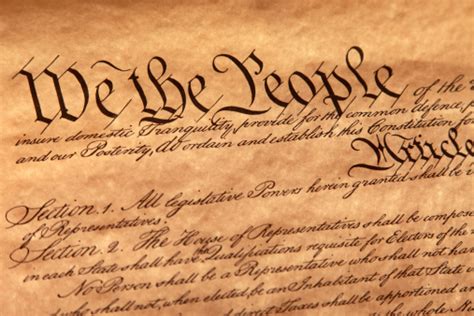 We the People of the
insure domestic Tranquility, provide for the common defence,
and our Posterity, do ordain and establish this Constitution for
Article
Section. 1. All legislative Powers herein granted shall be
of Representatives.
Section. 2. The House of Representatives shall be compos
in each State shall have Qualifications requisite for Electors of the
No Person shall be a Representative who shall not ha
who shall not, when elected, be an Inhabitant of that State
and direct Taxes shall be apportioned